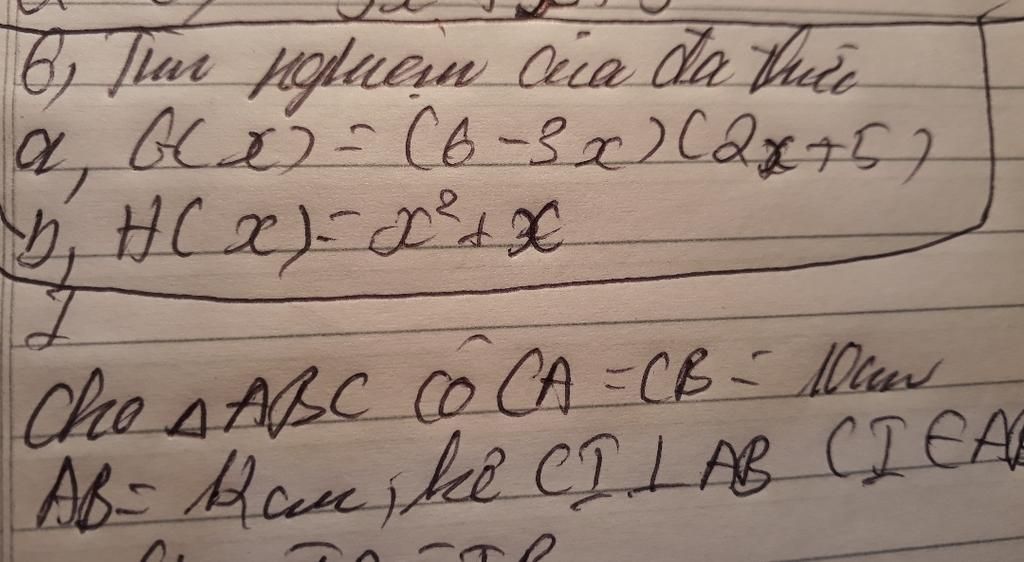 6, Tìm nghiệm của đa thức
a, G(x) = (6 - 3x)(2x+5)
b, H(x) = x² + x
I
Cho △ABC có CA = CB = 10cm
AB = 12cm, kẻ CI ⊥ AB (I ∈ AB